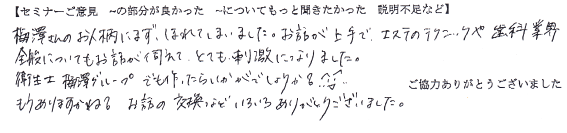 【セミナーご意見　~の部分が良かった　~についてもっと聞きたかった　説明不足など】
梅澤さんのお人柄にまず、ほれてしまいました。お話が上手で、エステのテクニックや歯科業界
全般についてもお話が伺えて、とても刺激になりました。
衛生士 梅澤グループでも作ったらいかがでしょうか?
もうありますかね? お話の交換などいろいろありがとうございました。
ご協力ありがとうございました